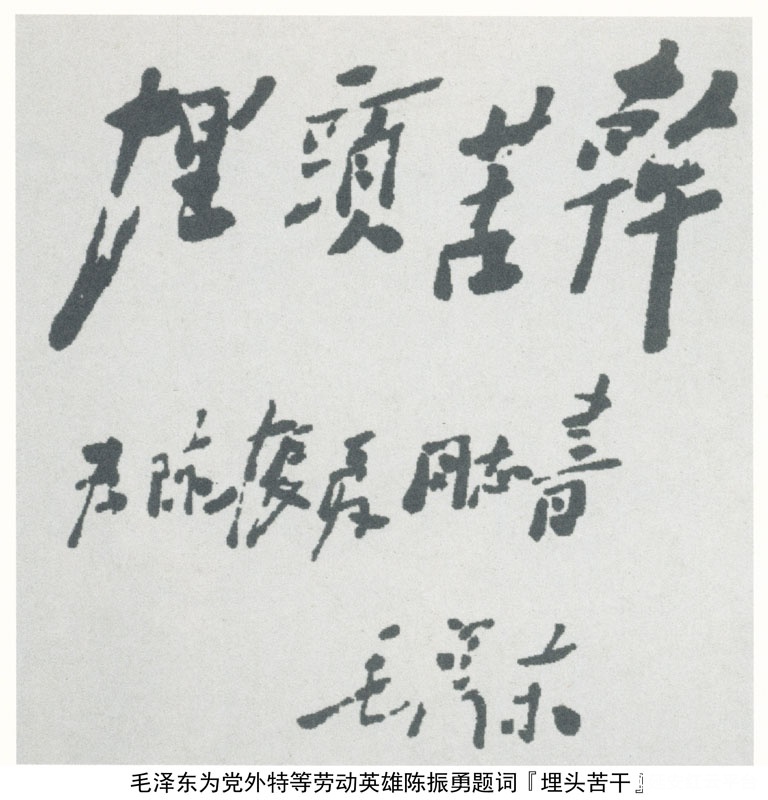 埋頭苦幹
为陈振夏同志書
毛澤东
毛泽东为党外特等劳动英雄陈振勇题词『埋头苦干』